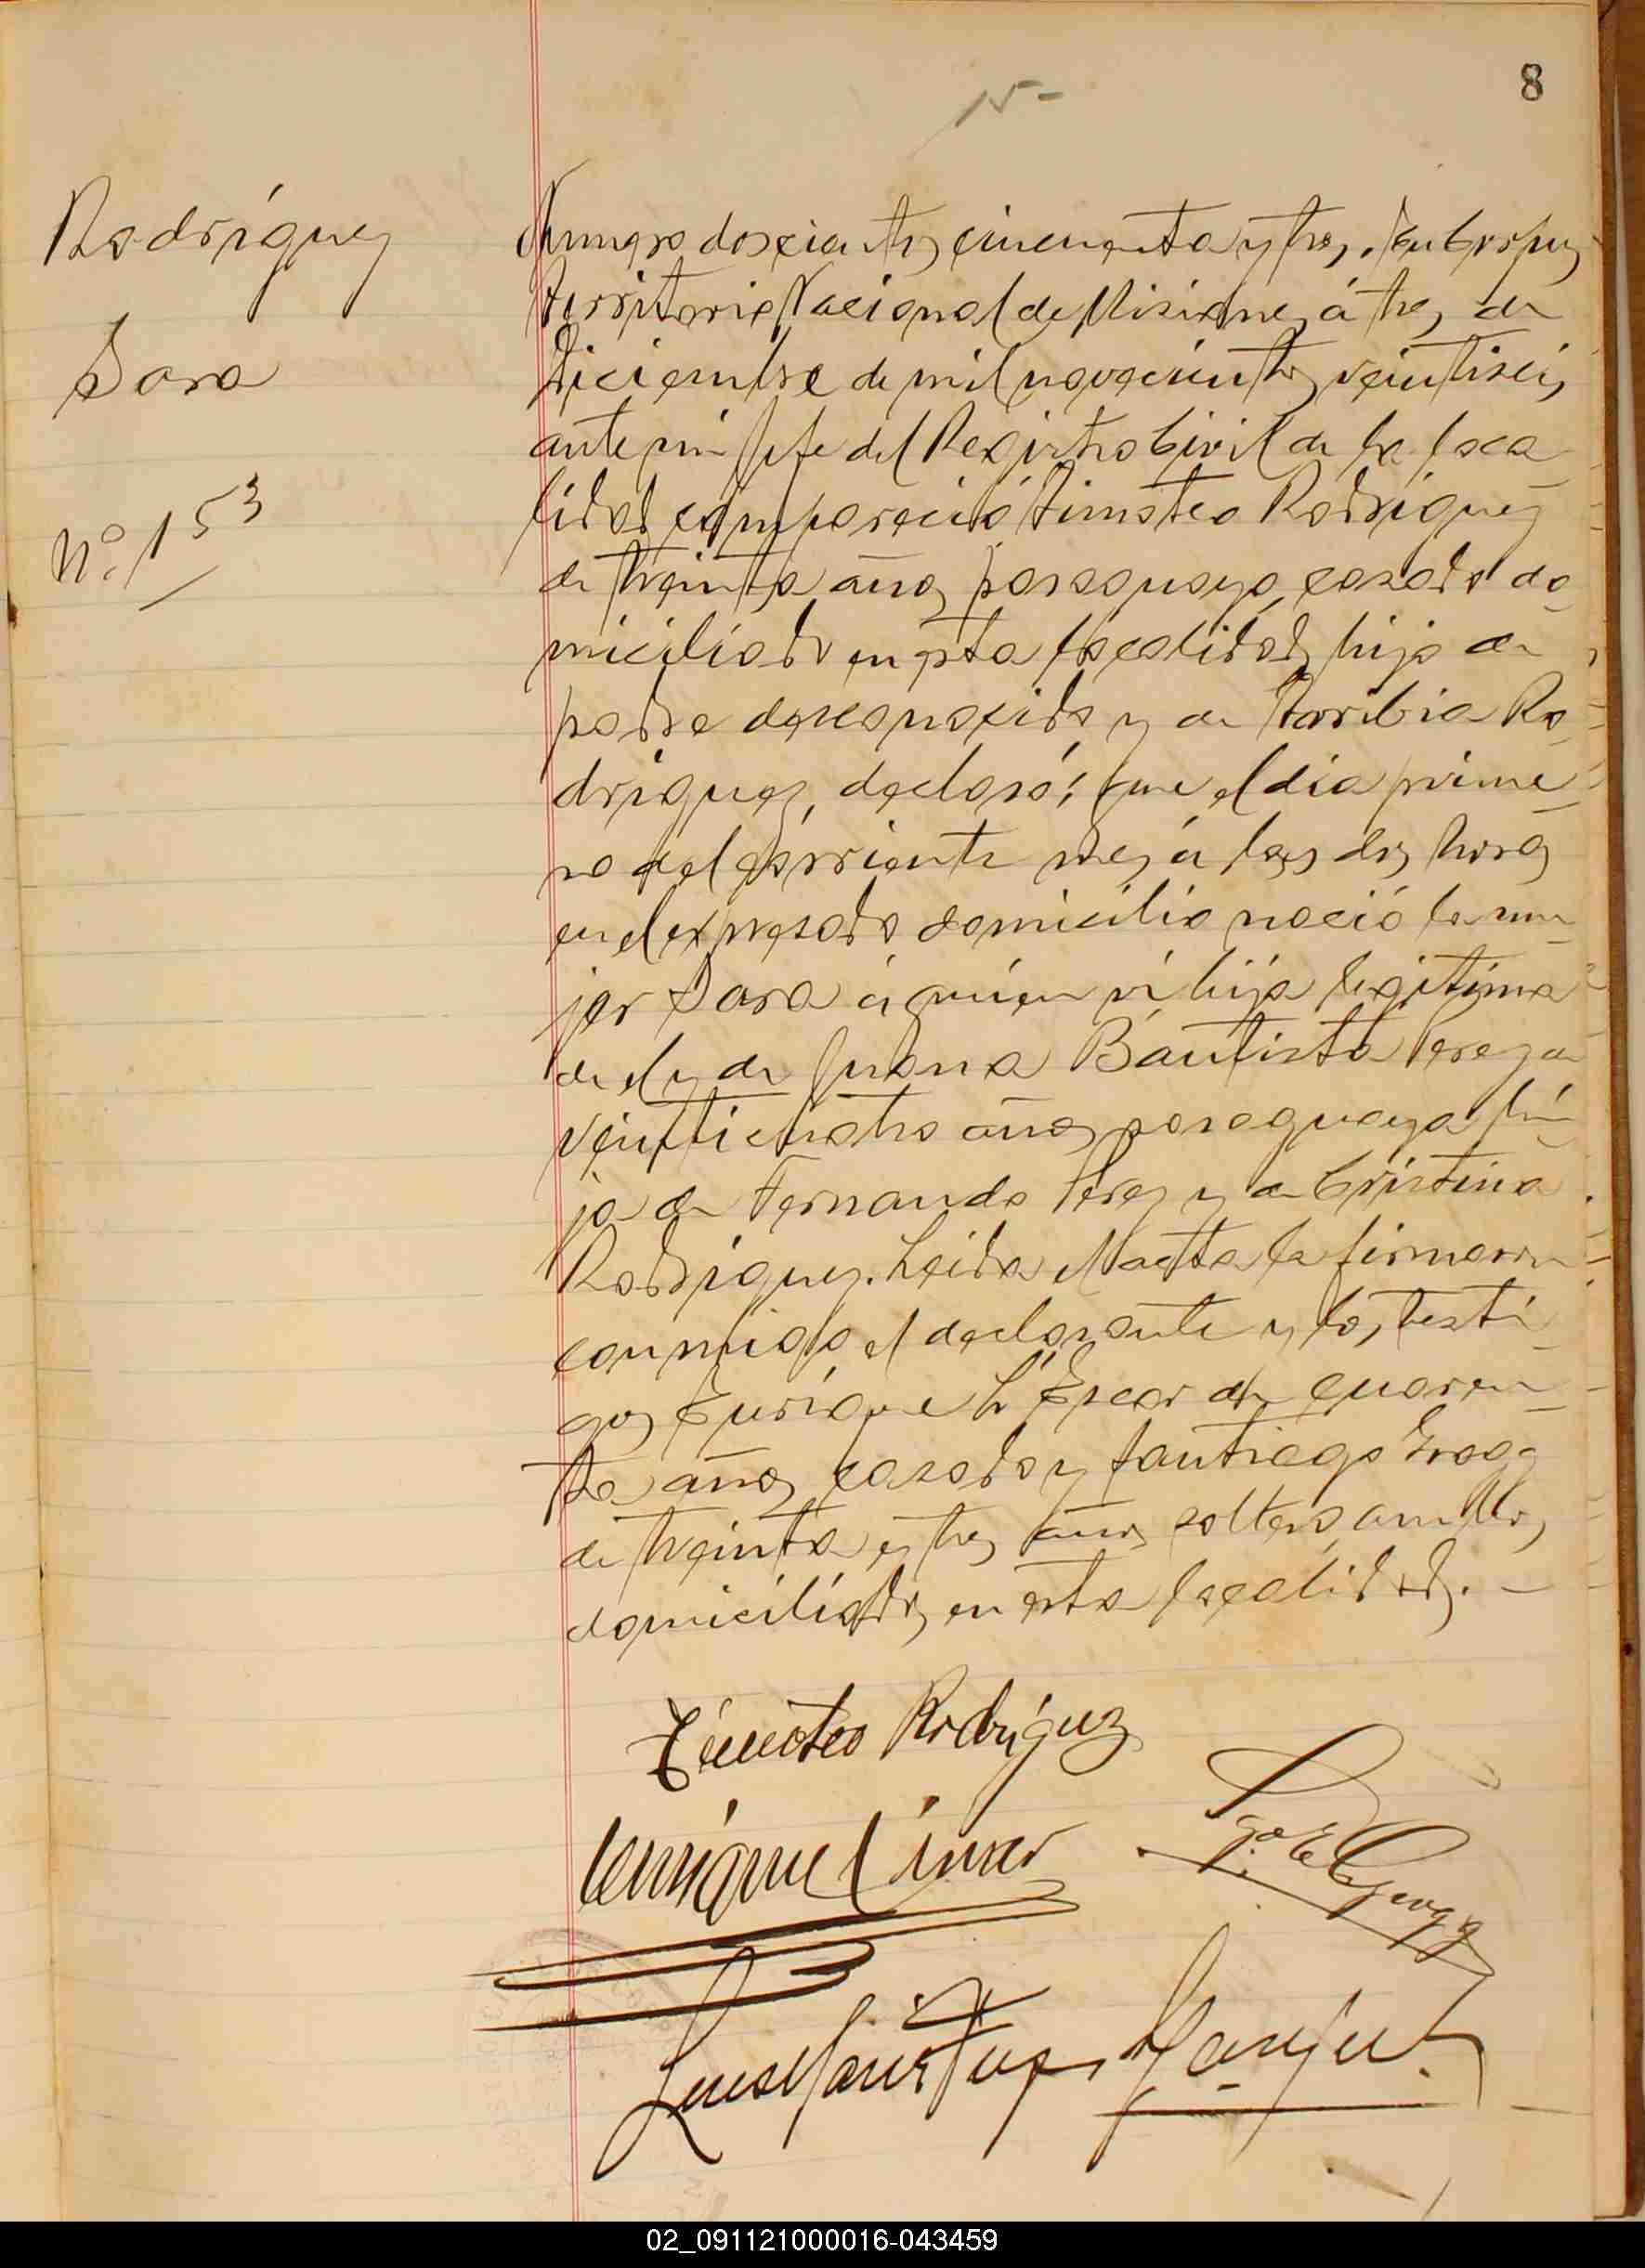 8
15-
Rodríguez
Sara
Nº 153
Numero doscientos cincuenta y tres. En Corpus
Territorio Nacional de Misiones á tres de
Diciembre de mil novecientos veintiseis,
ante mi Jefe del Registro Civil de la loca
lidad compareció Timoteo Rodríguez
de treinta años paraguayo, casado do
miciliado en esta localidad, hijo de
padre desconocido y de Torribia Ro
driguez, declaró: que el dia prime
ro del corriente mes á las dos horas
en el expresado domicilio nació la mu
jer Sara á quien ví hija legitima
de el y de Juana Bautista Perez de
veinticuatro años paraguaya hi
ja de Fernando Perez y de Cristina
Rodríguez. Leida el acta la firmaron
conmigo el declarante y los testi
gos Enrique de cuaren
ta años casado y Santiago
de treinta y tres años soltero, ambos
domiciliados en esta localidad. —
Timoteo Rodríguez
Enrique
02_091121000016-043459